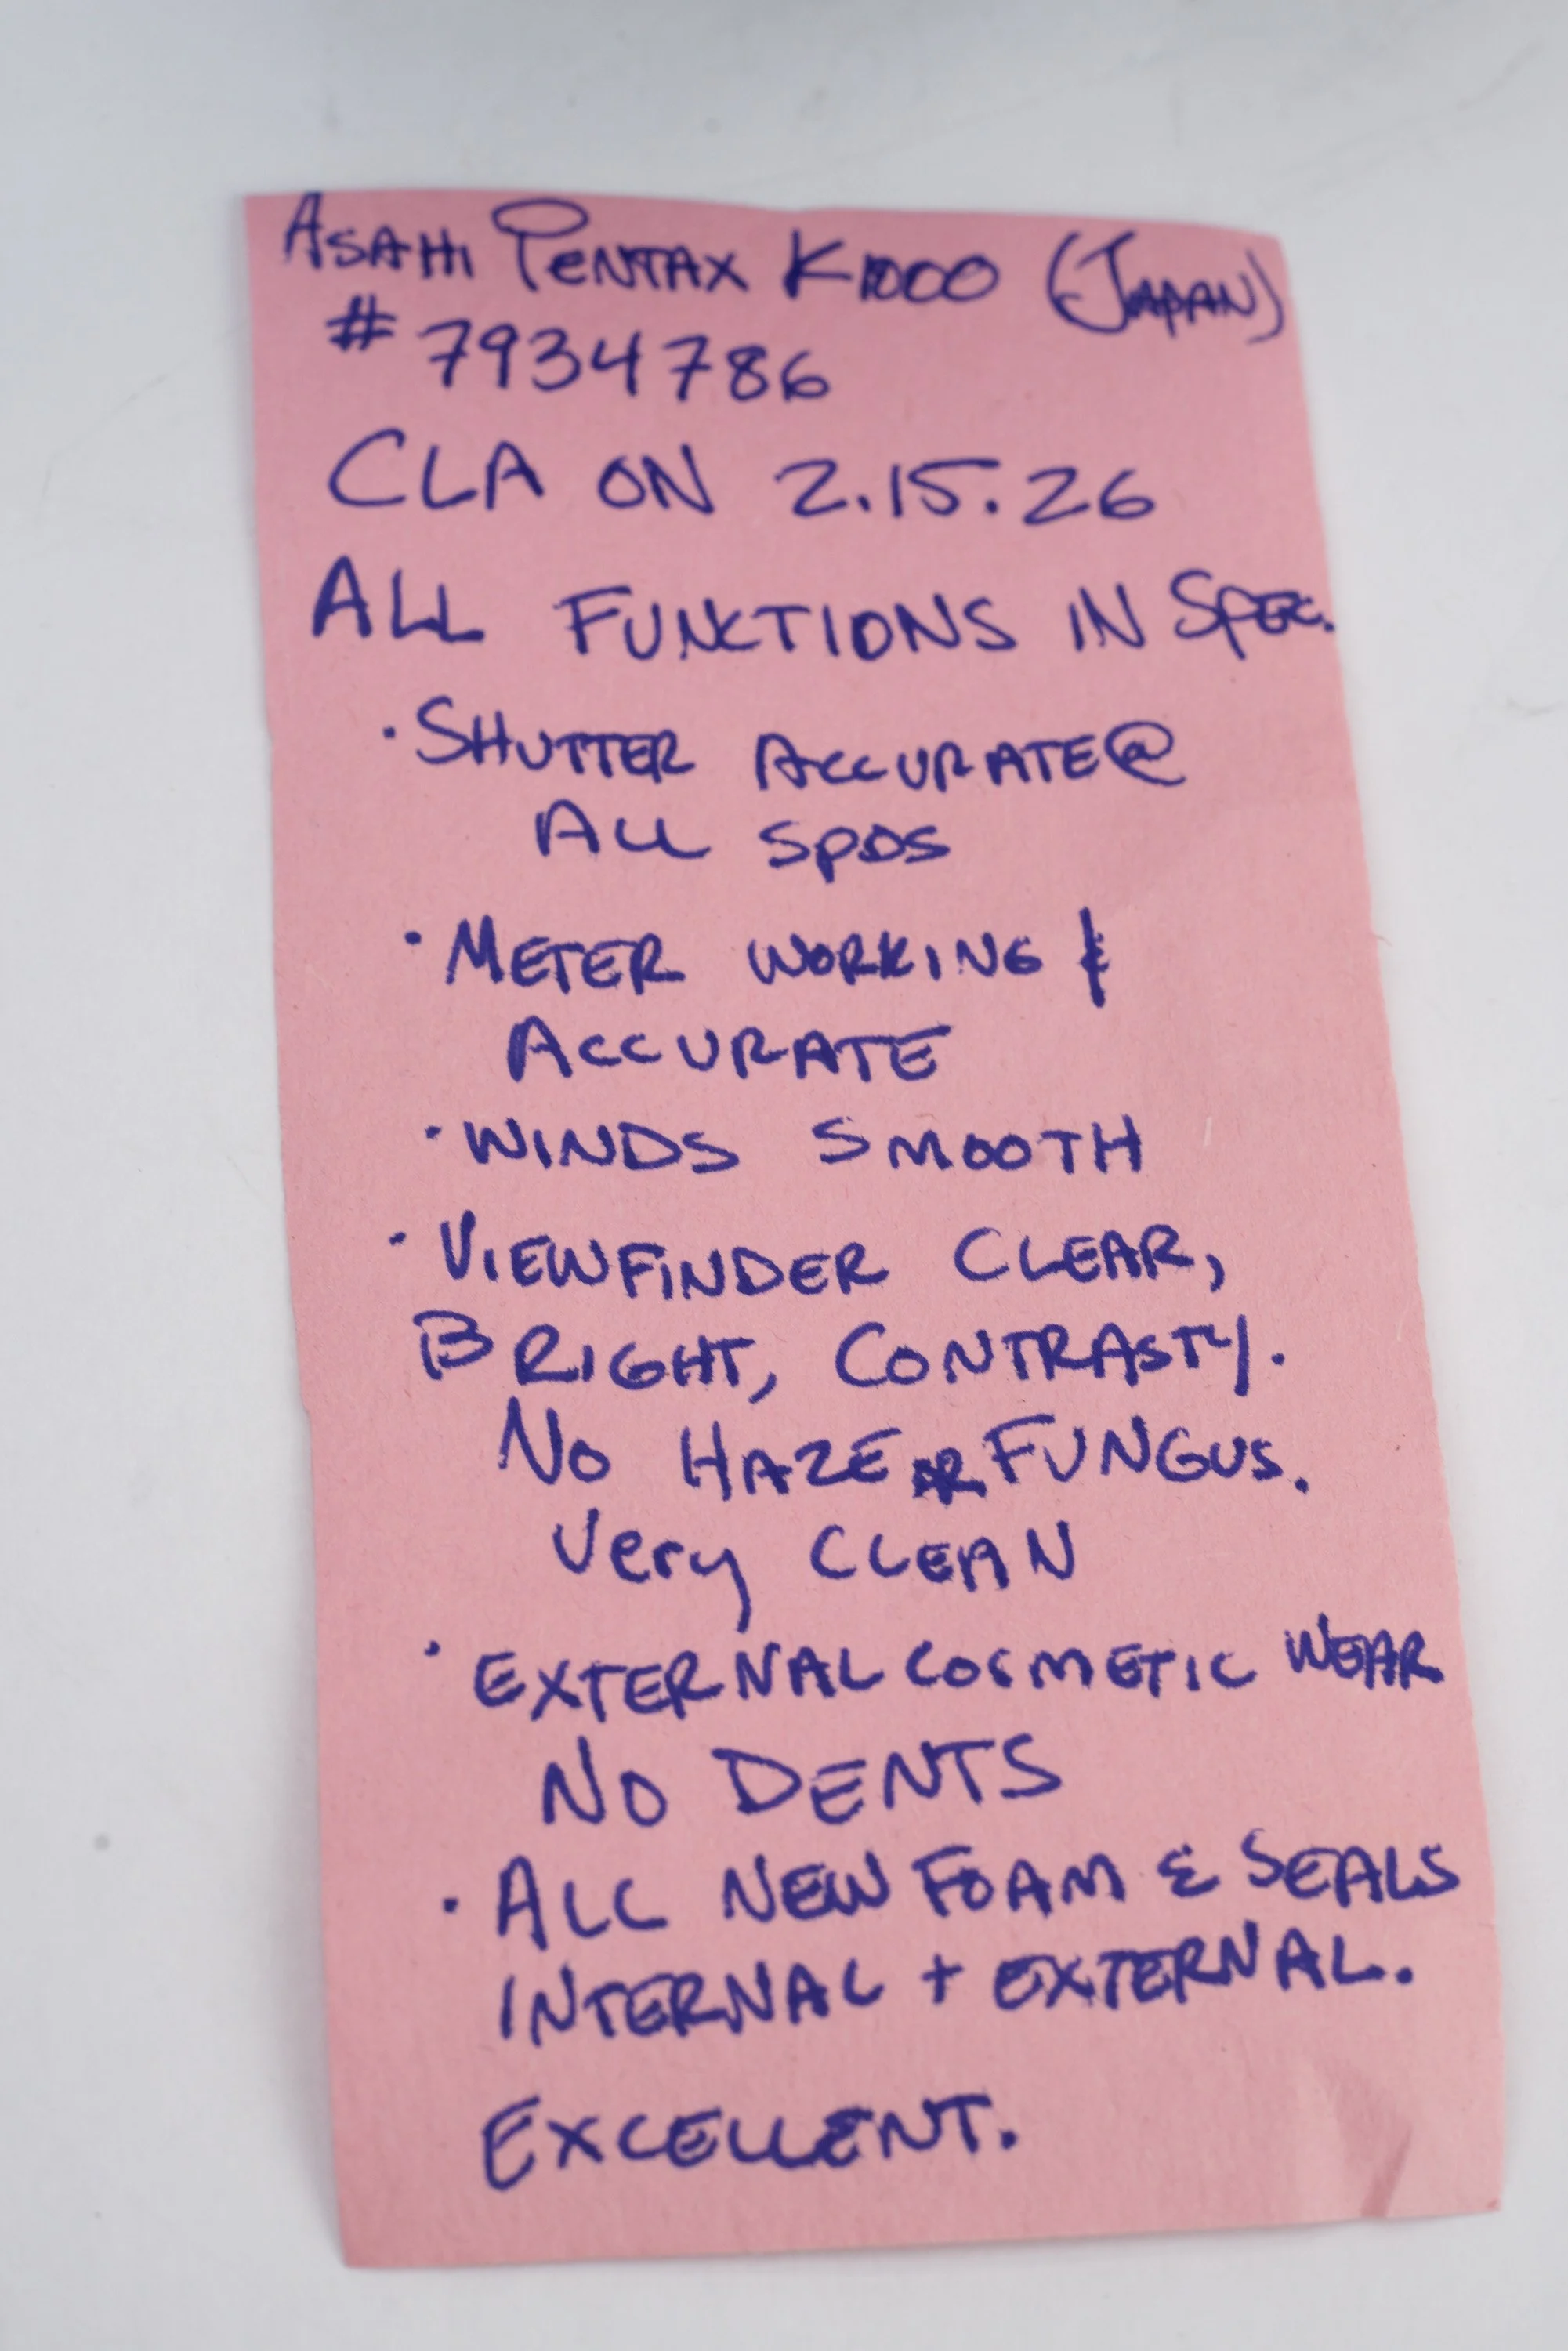 ASAHI PENTAX K1000 (JAPAN)
# 7934786
CLA ON 2.15.26
ALL FUNCTIONS IN SPEC.
· SHUTTER ACCURATE @
ALL SPDS
· METER WORKING &
ACCURATE
· WINDS SMOOTH
· VIEWFINDER CLEAR,
BRIGHT, CONTRASTY.
NO HAZE OR FUNGUS.
Very CLEAN
· EXTERNAL COSMETIC WEAR
NO DENTS
· ALL NEW FOAM & SEALS
INTERNAL + EXTERNAL.
EXCELLENT.